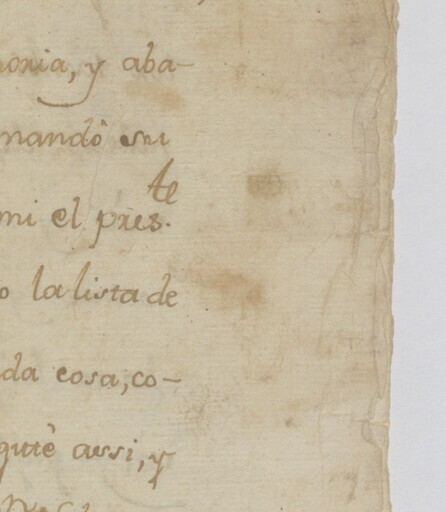 oria, y aba-
mandó su
mi el pres.te
o la lista de
da cosa, co-
quté assi, y